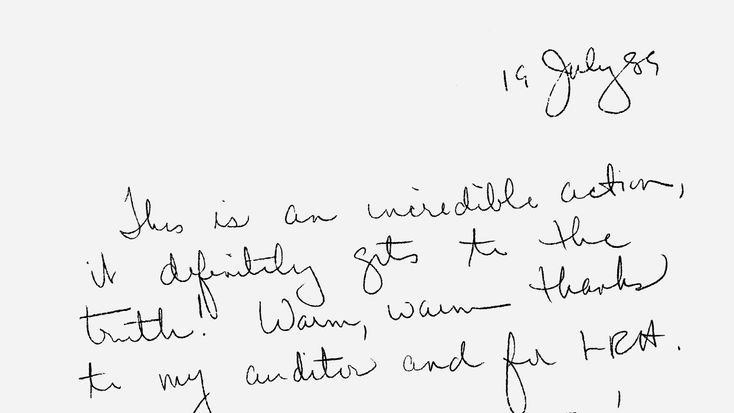 19 July 89
This is an incredible action,
it definitely gets to the
truth! Warm, warm thanks
to my auditor and for LRH.